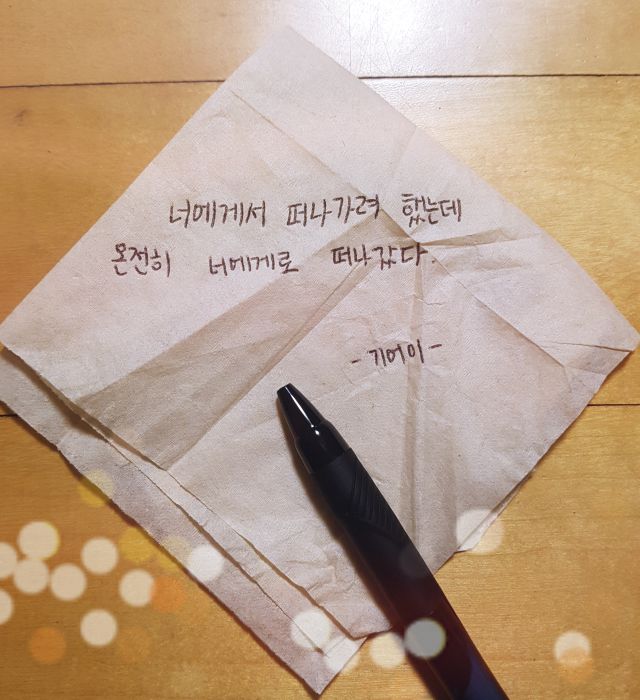 너에게서 떠나가려 했는데
온전히 너에게로 떠나갔다.
- 기어이 -